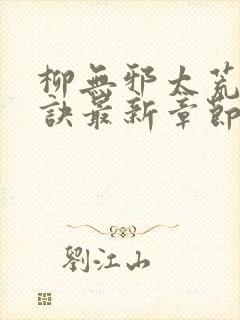 柳無邪太荒
訣最新章節
劉江山